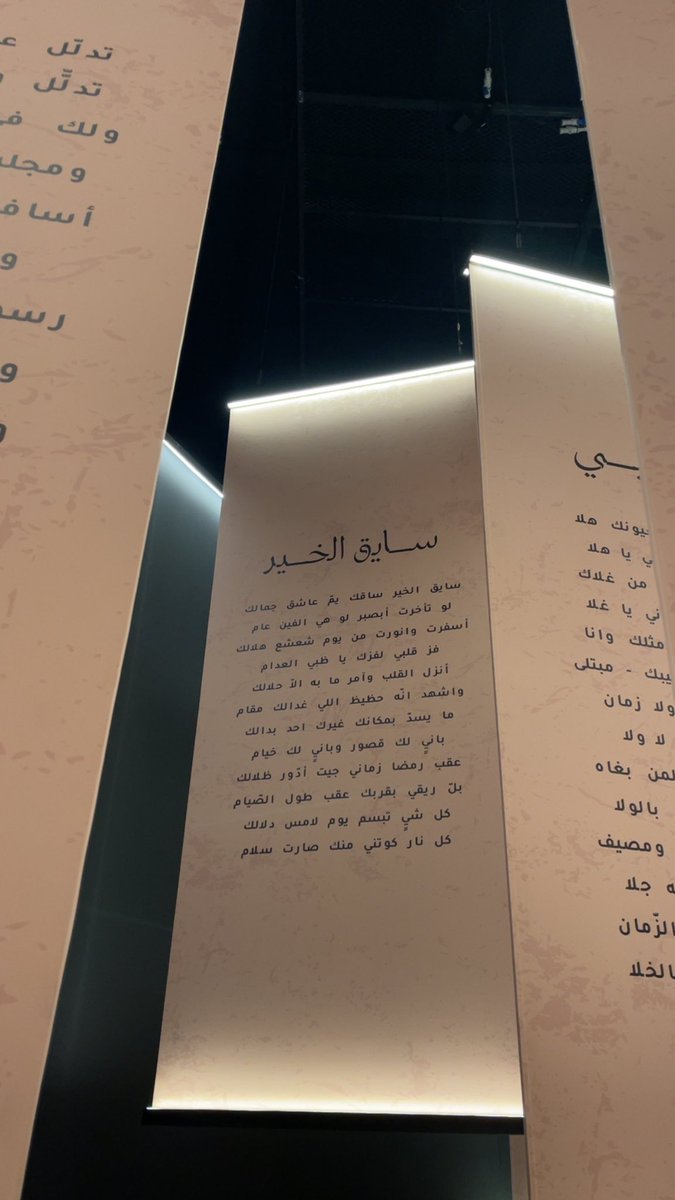 سايق الخير
سايق الخير ساقك يمّ عاشق جمالك
لو تأخرت أبصبر لو هي الفين عام
أسفرت وانورت من يوم شعشع هلالك
فز قلبي لفزك يا ظبي العدام
أنزل القلب وآمر ما به الاّ حلالك
واشهد انّه حظيظ اللي غدالك مقام
ما يسدّ بمكانك غيرك احد بدالك
بانيٍ لك قصور وبانيٍ لك خيام
عقب رمضا زماني جيت أدّور ظلالك
بلّ ريقي بقربك عقب طول الصّيام
كل شيٍ تبسم يوم لامس دلالك
كل نار كوتني منك صارت سلام
هلا
ي يا هلا
من غلاك
ني يا غلا
مثلك وانا
يبك - مبتلى
ولا زمان
لا ولا
لمن بغاه
بالولا
ومصيف
جلا
الزّمان
تدلّل
تدلّل
ولك
أساف
رسم